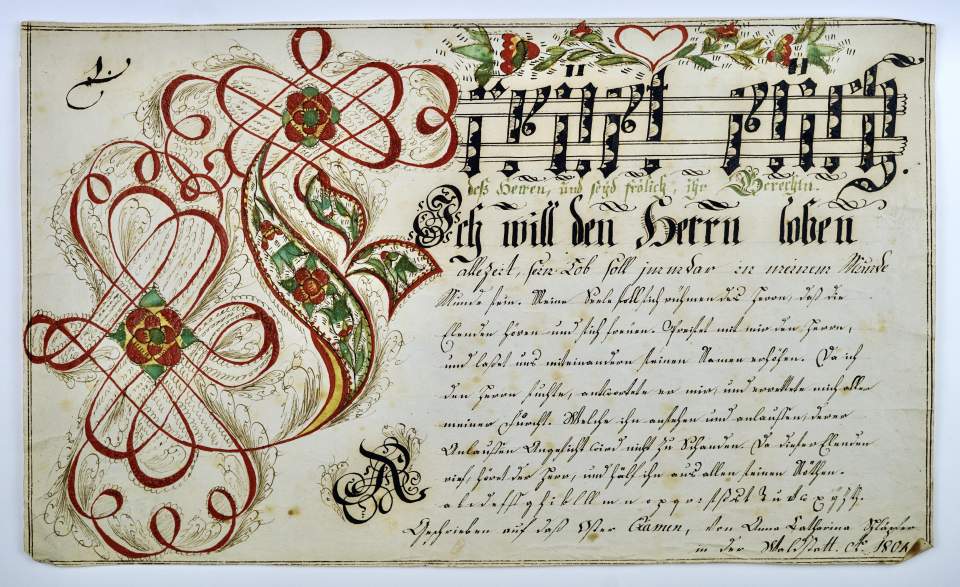 Freüet eüch.
deß Herren, und seyd frölich, ihr Gerechtn.
Ich will den Herrn loben
allezeit, sein Lob soll immdar in meinem Munde
Munde sein. Meine Seele soll sich rühmen des Herrn, daß die
Elenden hören und sich freüen. Preiset mit mir den Herrn,
und laßet uns miteinandern seinen Namen erhöhen. Da ich
den Herrn suchte, antwortete er mir, und errettete mich aller
meiner Furcht. Welche ihn ansehen und anlauffen, derer
Anlauffen Angesicht wird nicht zu Schanden. Da dieser Elenden
rief, höret der Herr, und half ihm aus allen seinen Nöthen.
R
Geschrieben auf das Oster Examen, von Anna Catharina Schläpfer
in der Waldstatt. Aº